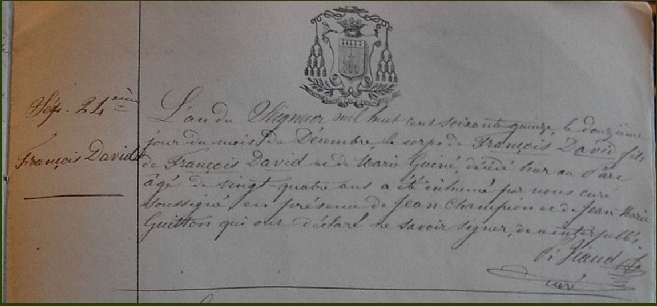 Sép. 24ième
François David
L'an du Seigneur mil huit cent soixante quinze, le douzième
jour du mois de Décembre, le corps de François David fils
de François David et de Marie Goiné, décédé hier au
âgé de vingt-quatre ans a été inhumé par nous curé
soussigné en présence de Jean Champion et de Jean Marie
Guitton qui ont déclaré ne savoir signer, de ce interpellés
curé